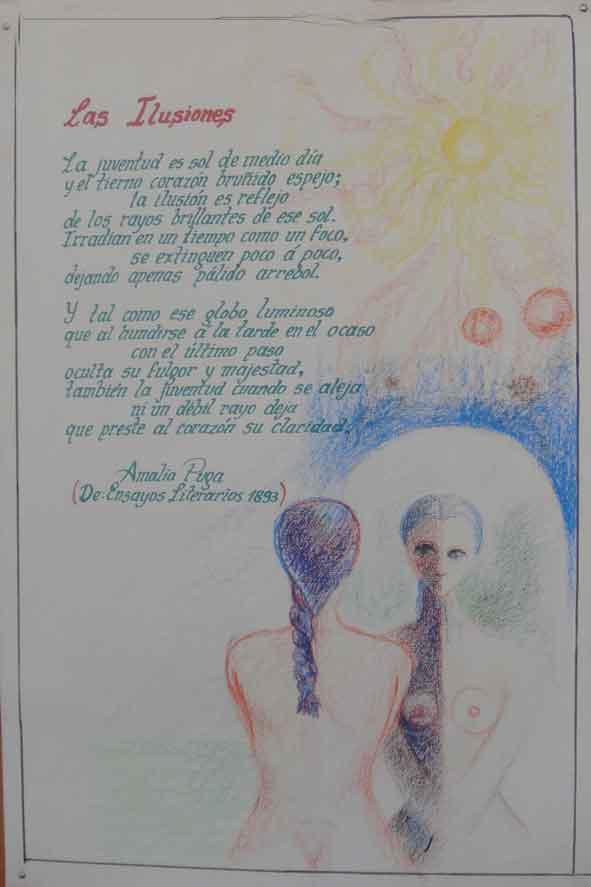 Las Ilusiones
La juventud es sol de medio día
y el tierno corazón bruñido espejo;
la ilusión es reflejo
de los rayos brillantes de ese sol.
Irradian en un tiempo como un foco,
se extinguen poco á poco,
dejando apenas pálido arrebol.
Y tal como ese globo luminoso
que al hundirse á la tarde en el ocaso
con el último paso
oculta su fulgor y majestad,
también la juventud cuando se aleja
ni un débil rayo deja
que preste al corazón su claridad.
Amalia Puga
(De: Ensayos Literarios 1893)